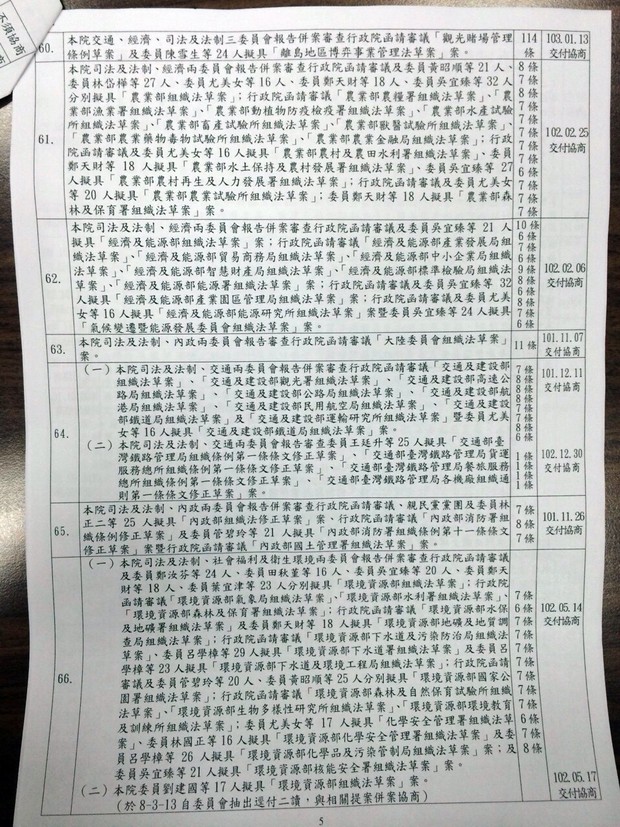 不須協商
商
60.
本院交通、經濟、司法及法制三委員會報告併案審查行政院函請審議「觀光賭場管理
條例草案」及委員陳雪生等 24 人擬具「離島地區博弈事業管理法草案」案。
114
條
103.01.13
交付協商
61.
本院司法及法制、經濟兩委員會報告併案審查行政院函請審議及委員黃昭順等 21 人、
委員林岱樺等 27 人、委員尤美女等 16 人、委員鄭天財等 18 人、委員吳宜臻等 32 人
分別擬具「農業部組織法草案」；行政院函請審議「農業部農糧署組織法草案」、「農
業部漁業署組織法草案」、「農業部動植物防疫檢疫署組織法草案」、「農業部水產試驗
所組織法草案」、「農業部畜產試驗所組織法草案」、「農業部獸醫試驗所組織法草案」、
「農業部農業藥物毒物試驗所組織法草案」、「農業部農業金融局組織法草案」；行政
院函請審議及委員尤美女等 16 人擬具「農業部農村及農田水利署組織法草案」、委員
鄭天財等 18 人擬具「農業部水土保持及農村發展署組織法草案」、委員吳宜臻等 27
人擬具「農業部農村再生及人力發展署組織法草案」；行政院函請審議及委員尤美女
等 20 人擬具「農業部農業試驗所組織法草案」；委員鄭天財等 18 人擬具「農業部森
林及保育署組織法草案」案。
8 條
7 條
8 條
7 條
7 條
7 條
7 條
7 條
6 條
7 條
7 條
7 條
102.02.25
交付協商
62.
本院司法及法制、經濟兩委員會報告併案審查行政院函請審議及委員吳宜臻等 21 人
擬具「經濟及能源部組織法草案」案；行政院函請審議「經濟及能源部產業發展局組
織法草案」、「經濟及能源部貿易商務局組織法草案」、「經濟及能源部中小企業局組織
法草案」、「經濟及能源部智慧財產局組織法草案」、「經濟及能源部標準檢驗局組織法
草案」、「經濟及能源部能源署組織法草案」案；行政院函請審議及委員吳宜臻等 32
人擬具「經濟及能源部產業園區管理局組織法草案」案；行政院函請審議及委員尤美
女等 16 人擬具「經濟及能源部能源研究所組織法草案」案暨委員吳宜臻等 24 人擬具
「氣候變遷暨能源發展委員會組織法草案」案。
10 條
6 條
102.02.06
交付協商
63.
本院司法及法制、內政兩委員會報告併案審查行政院函請審議「大陸委員會組織法草案」
案。
11 條
101.11.07
交付協商
64.
（一）本院司法及法制、交通兩委員會報告併案審查行政院函請審議「交通及建設部
組織法草案」、「交通及建設部觀光署組織法草案」、「交通及建設部高速公
路局組織法草案」、「交通及建設部公路局組織法草案」、「交通及建設部航
港局組織法草案」、「交通及建設部民用航空局組織法草案」、「交通及建設
部鐵道局組織法草案」及「交通及建設部運輸研究所組織法草案」暨委員尤美
女等 16 人擬具「交通及建設部鐵道局組織法草案」案。
（二）本院司法及法制、交通兩委員會報告審查委員王廷升等 25 人擬具「交通部臺
灣鐵路管理局組織條例第一條條文修正草案」、「交通部臺灣鐵路管理局貨運
服務總所組織條例第一條條文修正草案」、「交通部臺灣鐵路管理局餐旅服務
總所組織條例第一條條文修正草案」、「交通部臺灣鐵路管理局各機廠組織通
則第一條條文修正草案」案。
7 條
8 條
1 條
1 條
1 條
1 條
101.12.11
交付協商
102.12.30
交付協商
65.
本院司法及法制、內政兩委員會報告併案審查行政院函請審議、親民黨黨團及委員林
正二等 25 人擬具「內政部組織法修正草案」案、行政院函請審議「內政部消防署組
織條例修正草案」及委員管碧玲等 21 人擬具「內政部消防署組織條例第十一條條文
修正草案」案暨行政院函請審議「內政部國土管理署組織法草案」案。
7 條
8 條
7 條
101.11.26
交付協商
66.
（一）本院司法及法制、社會福利及衛生環境兩委員會報告併案審查行政院函請審議
及委員鄭汝芬等 24 人、委員田秋堇等 16 人、委員吳宜臻等 20 人、委員鄭天
財等 18 人、委員葉宜津等 23 人分別擬具「環境資源部組織法草案」；行政院
函請審議「環境資源部氣象局組織法草案」、「環境資源部水利署組織法草案」、
「環境資源部森林及保育署組織法草案」；行政院函請審議「環境資源部水保
及地礦署組織法草案」及委員鄭天財等 18 人擬具「環境資源部地礦及地質調
查局組織法草案」；行政院函請審議「環境資源部下水道及污染防治局組織法
草案」、委員呂學樟等 29 人擬具「環境資源部下水道署組織法草案」及委員呂
學樟等 23 人擬具「環境資源部下水道及環境工程局組織法草案」；行政院函請
審議及委員管碧玲等 20 人、委員黃昭順等 25 人分別擬具「環境資源部國家公
園署組織法草案」；行政院函請審議「環境資源部森林及自然保育試驗所組織
法草案」、「環境資源部生物多樣性研究所組織法草案」、「環境資源部環境教育
及訓練所組織法草案」；委員尤美女等 17 人擬具「化學安全管理署組織法草
案」、委員林國正等 16 人擬具「環境資源部化學安全管理署組織法草案」及委
員呂學樟等 26 人擬具「環境資源部化學品及污染管制局組織法草案」案；及
委員吳宜臻等 21 人擬具「環境資源部核能安全署組織法草案」案。
（二）本院委員劉建國等 17 人擬具「環境資源部組織法草案」案。
（於 8-3-13 自委員會抽出逕付二讀，與相關提案併案協商）
7 條
6 條
7 條
102.05.14
交付協商
102.05.17
交付協商
5